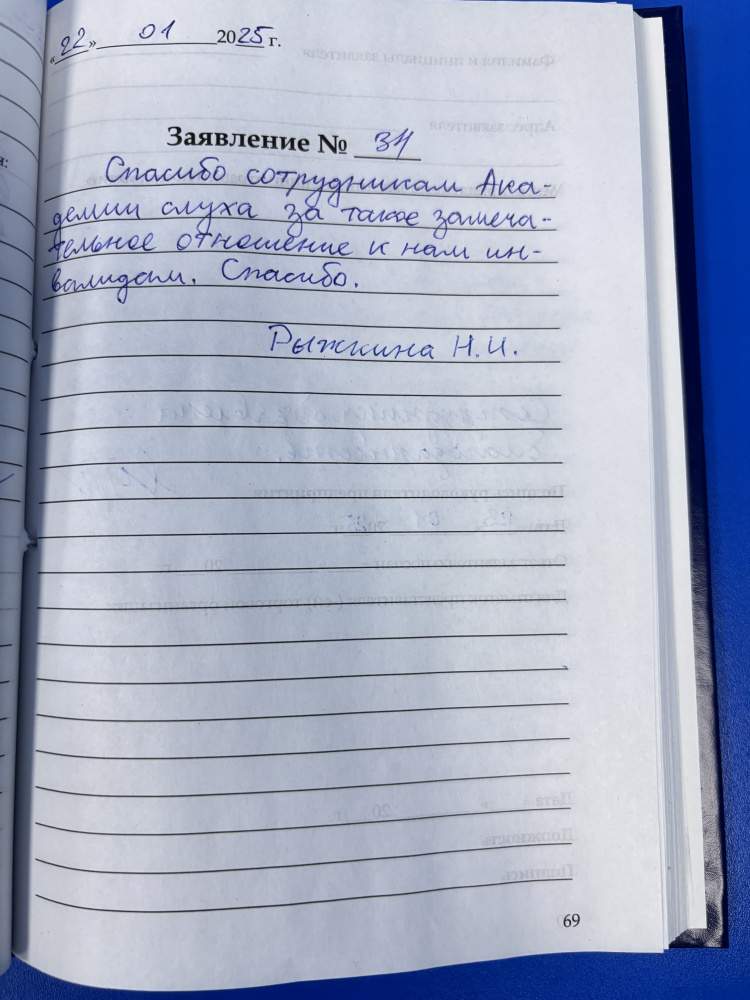 «22» 01 2025 г.
Заявление № 34
Спасибо сотрудникам Ака-
демии слуха за такое замеча-
тельное отношение к нам ин-
валидам. Спасибо.
Рыжкина Н.И.
69